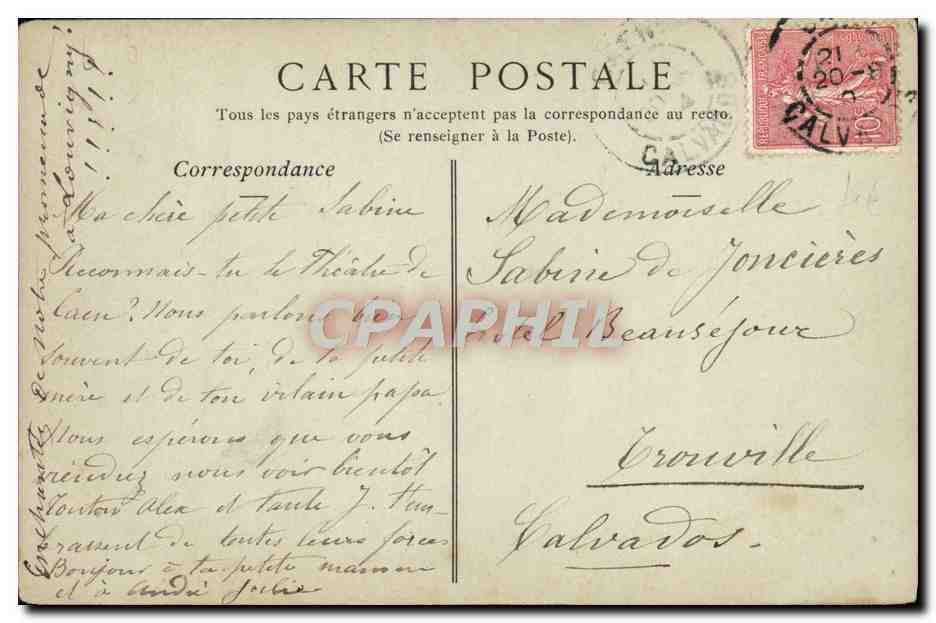 CARTE POSTALE
Tous les pays étrangers n'acceptent pas la correspondance au recto.
(Se renseigner à la Poste).
Correspondance
Ma chère petite Sabine
Reconnais-tu le Théâtre de
Caen? Nous parlons bien
souvent de toi, de ta petite
mère et de ton vilain papa.
Nous espérons que vous
viendrez nous voir bientôt
Tonton Alex et tante J. t'em-
brassent de toutes leurs forces
Bonjour à ta petite maman
et à André Julie
Enchantés de notre promenade
à Louvigny!
Adresse
Mademoiselle
Sabine de Joncières
Hotel Beauséjour
Trouville
Calvados.
REPUBLIQUE FRANÇAISE
10
21
20-8
CALVADOS
CALVADOS
CPAPHIL